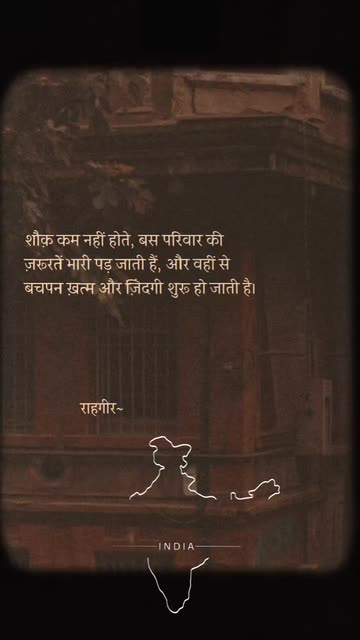 शौक़ कम नहीं होते, बस परिवार की
ज़रूरतें भारी पड़ जाती हैं, और वहीं से
बचपन ख़त्म और ज़िंदगी शुरू हो जाती है।
राहगीर~
INDIA